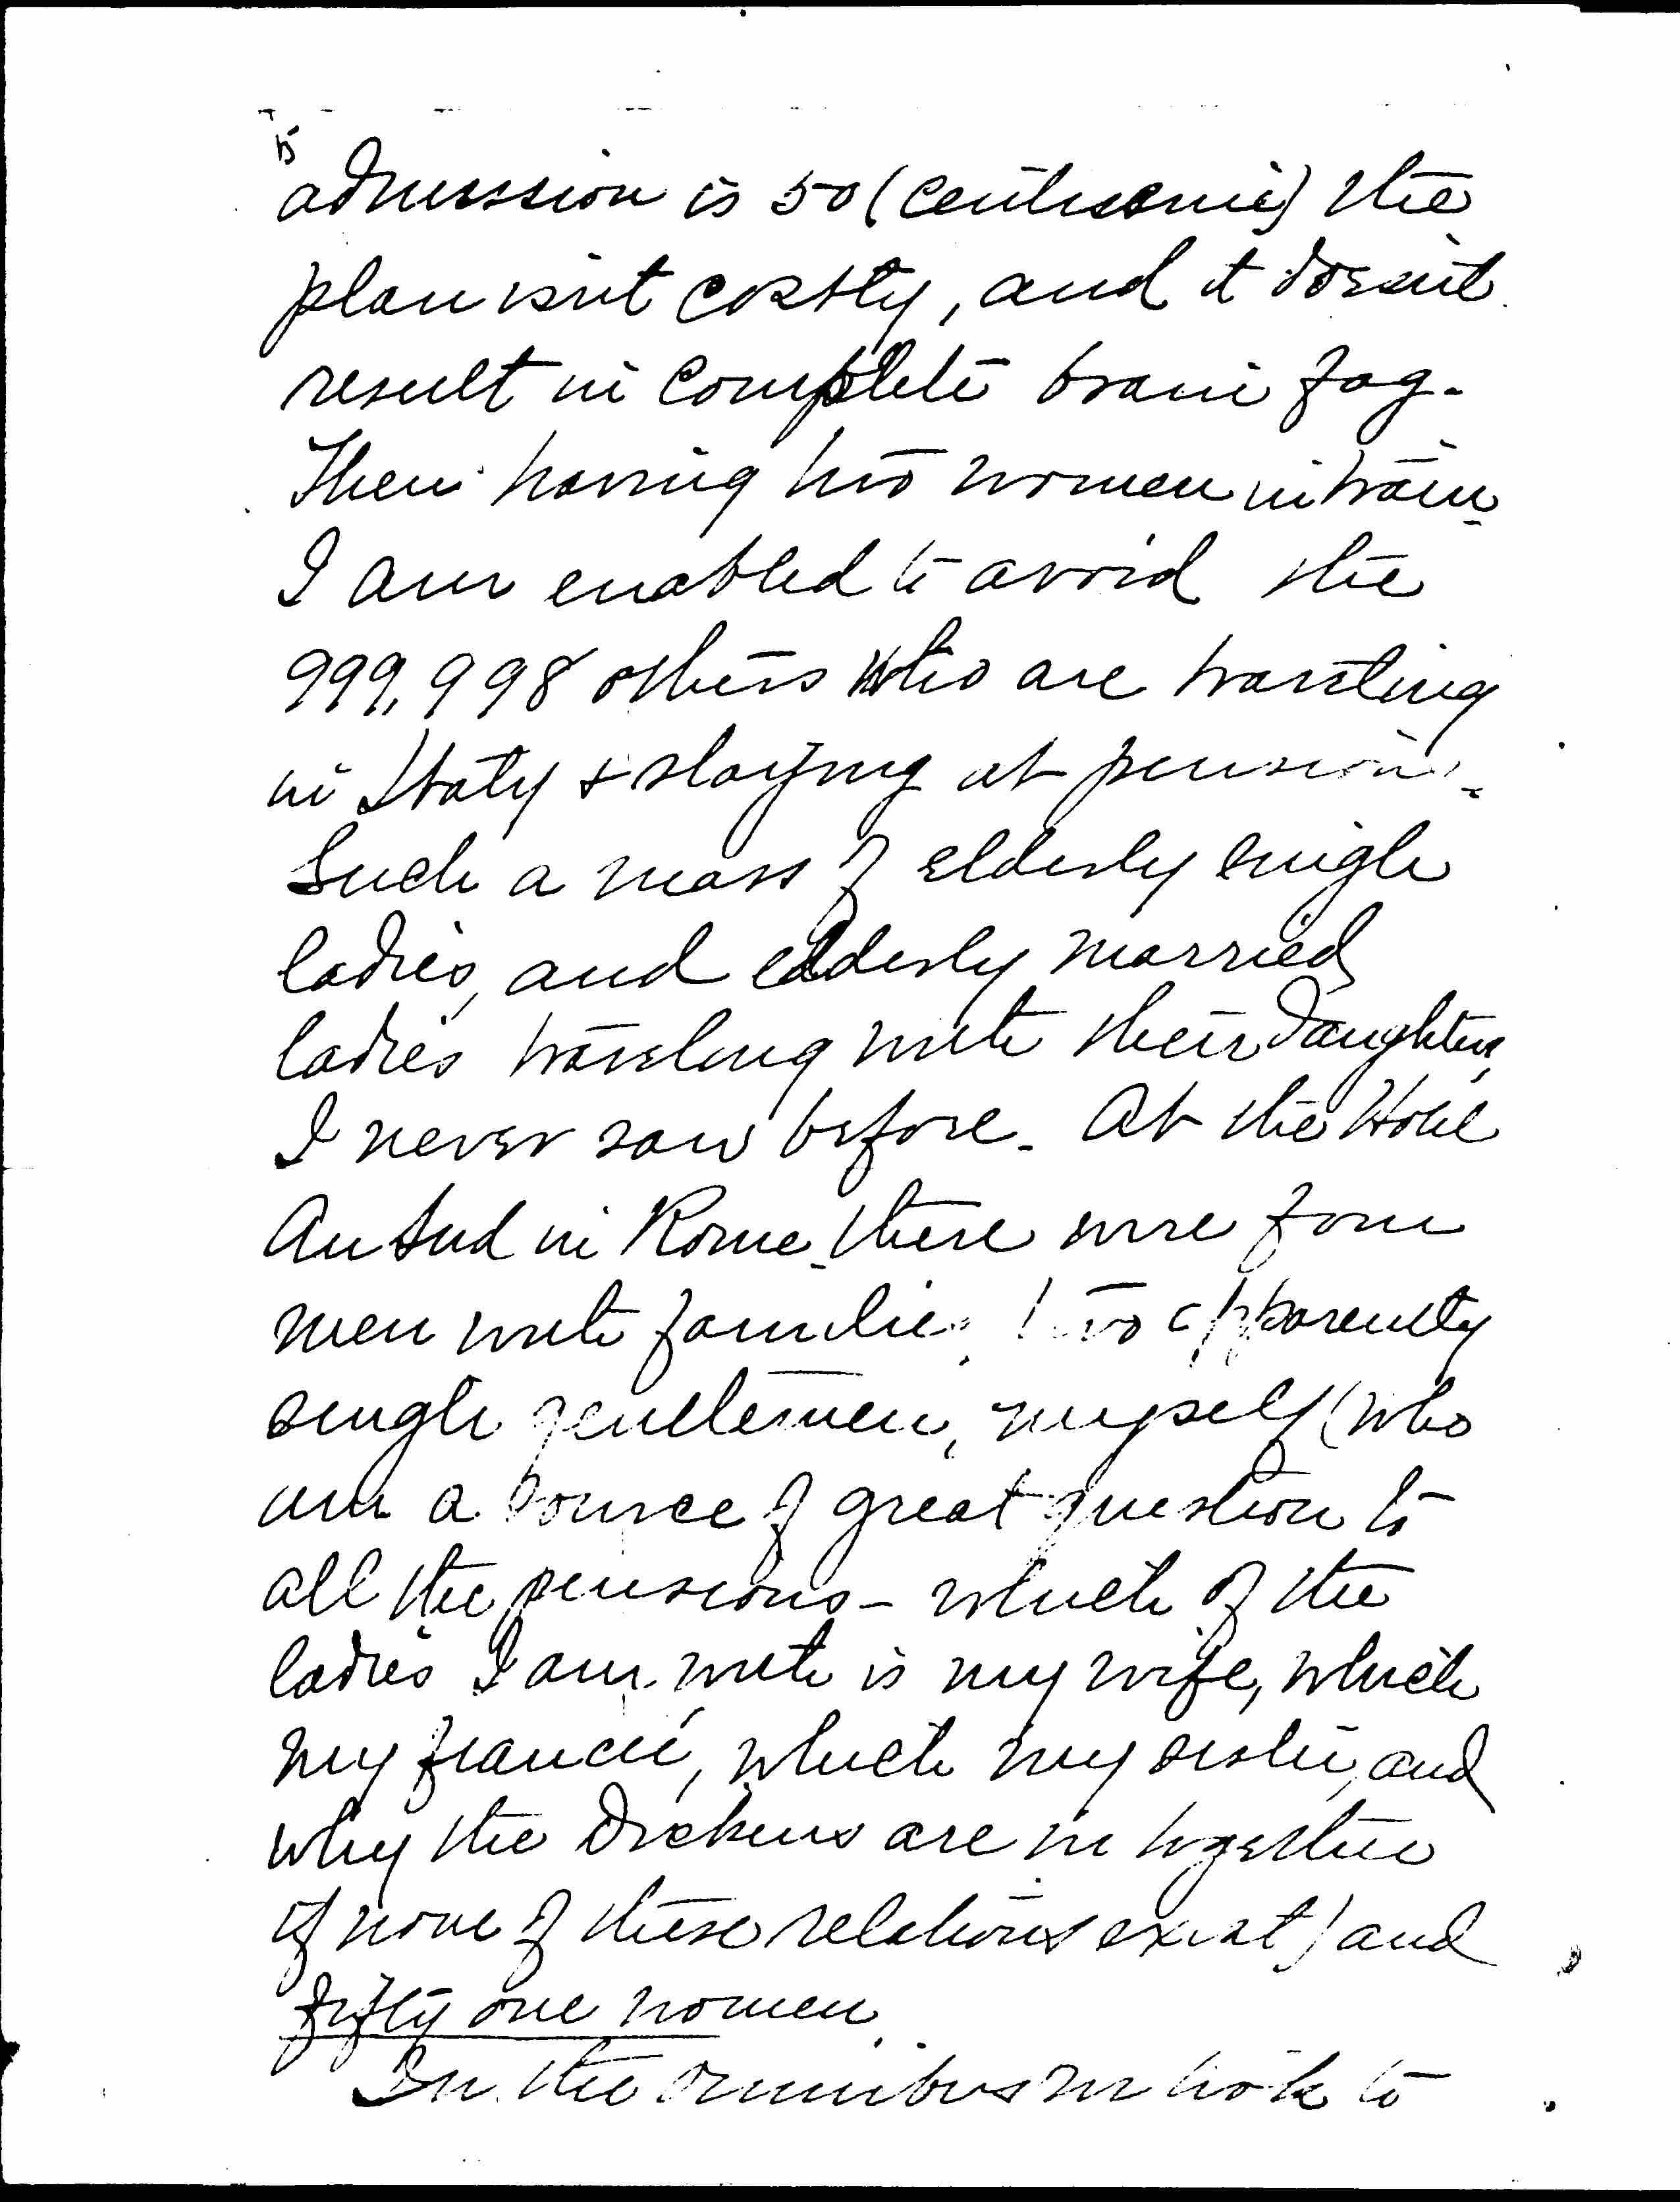 5
admission is 50 (centissmi) the
plan isn't costly, and it doesn't
result in complete brain fag.
Then having two women in train
I am enabled to avoid the
999,998 others who are traveling
in Italy & staying at pensions.
Such a mass of elderly single
ladies, and elderly married
ladies traveling with their daughters,
I never saw before. At the Hotel
Au Sud in Rome there were four
men with families, two apparently
single gentlemen, myself (who
am a source of great question to
all the pensions - which of the
ladies I am with is my wife, which
my fiancée, which my sister, and
why the Dickens are we together
if none of these relations exist) and
fifty one women.
In the omnibus we took to